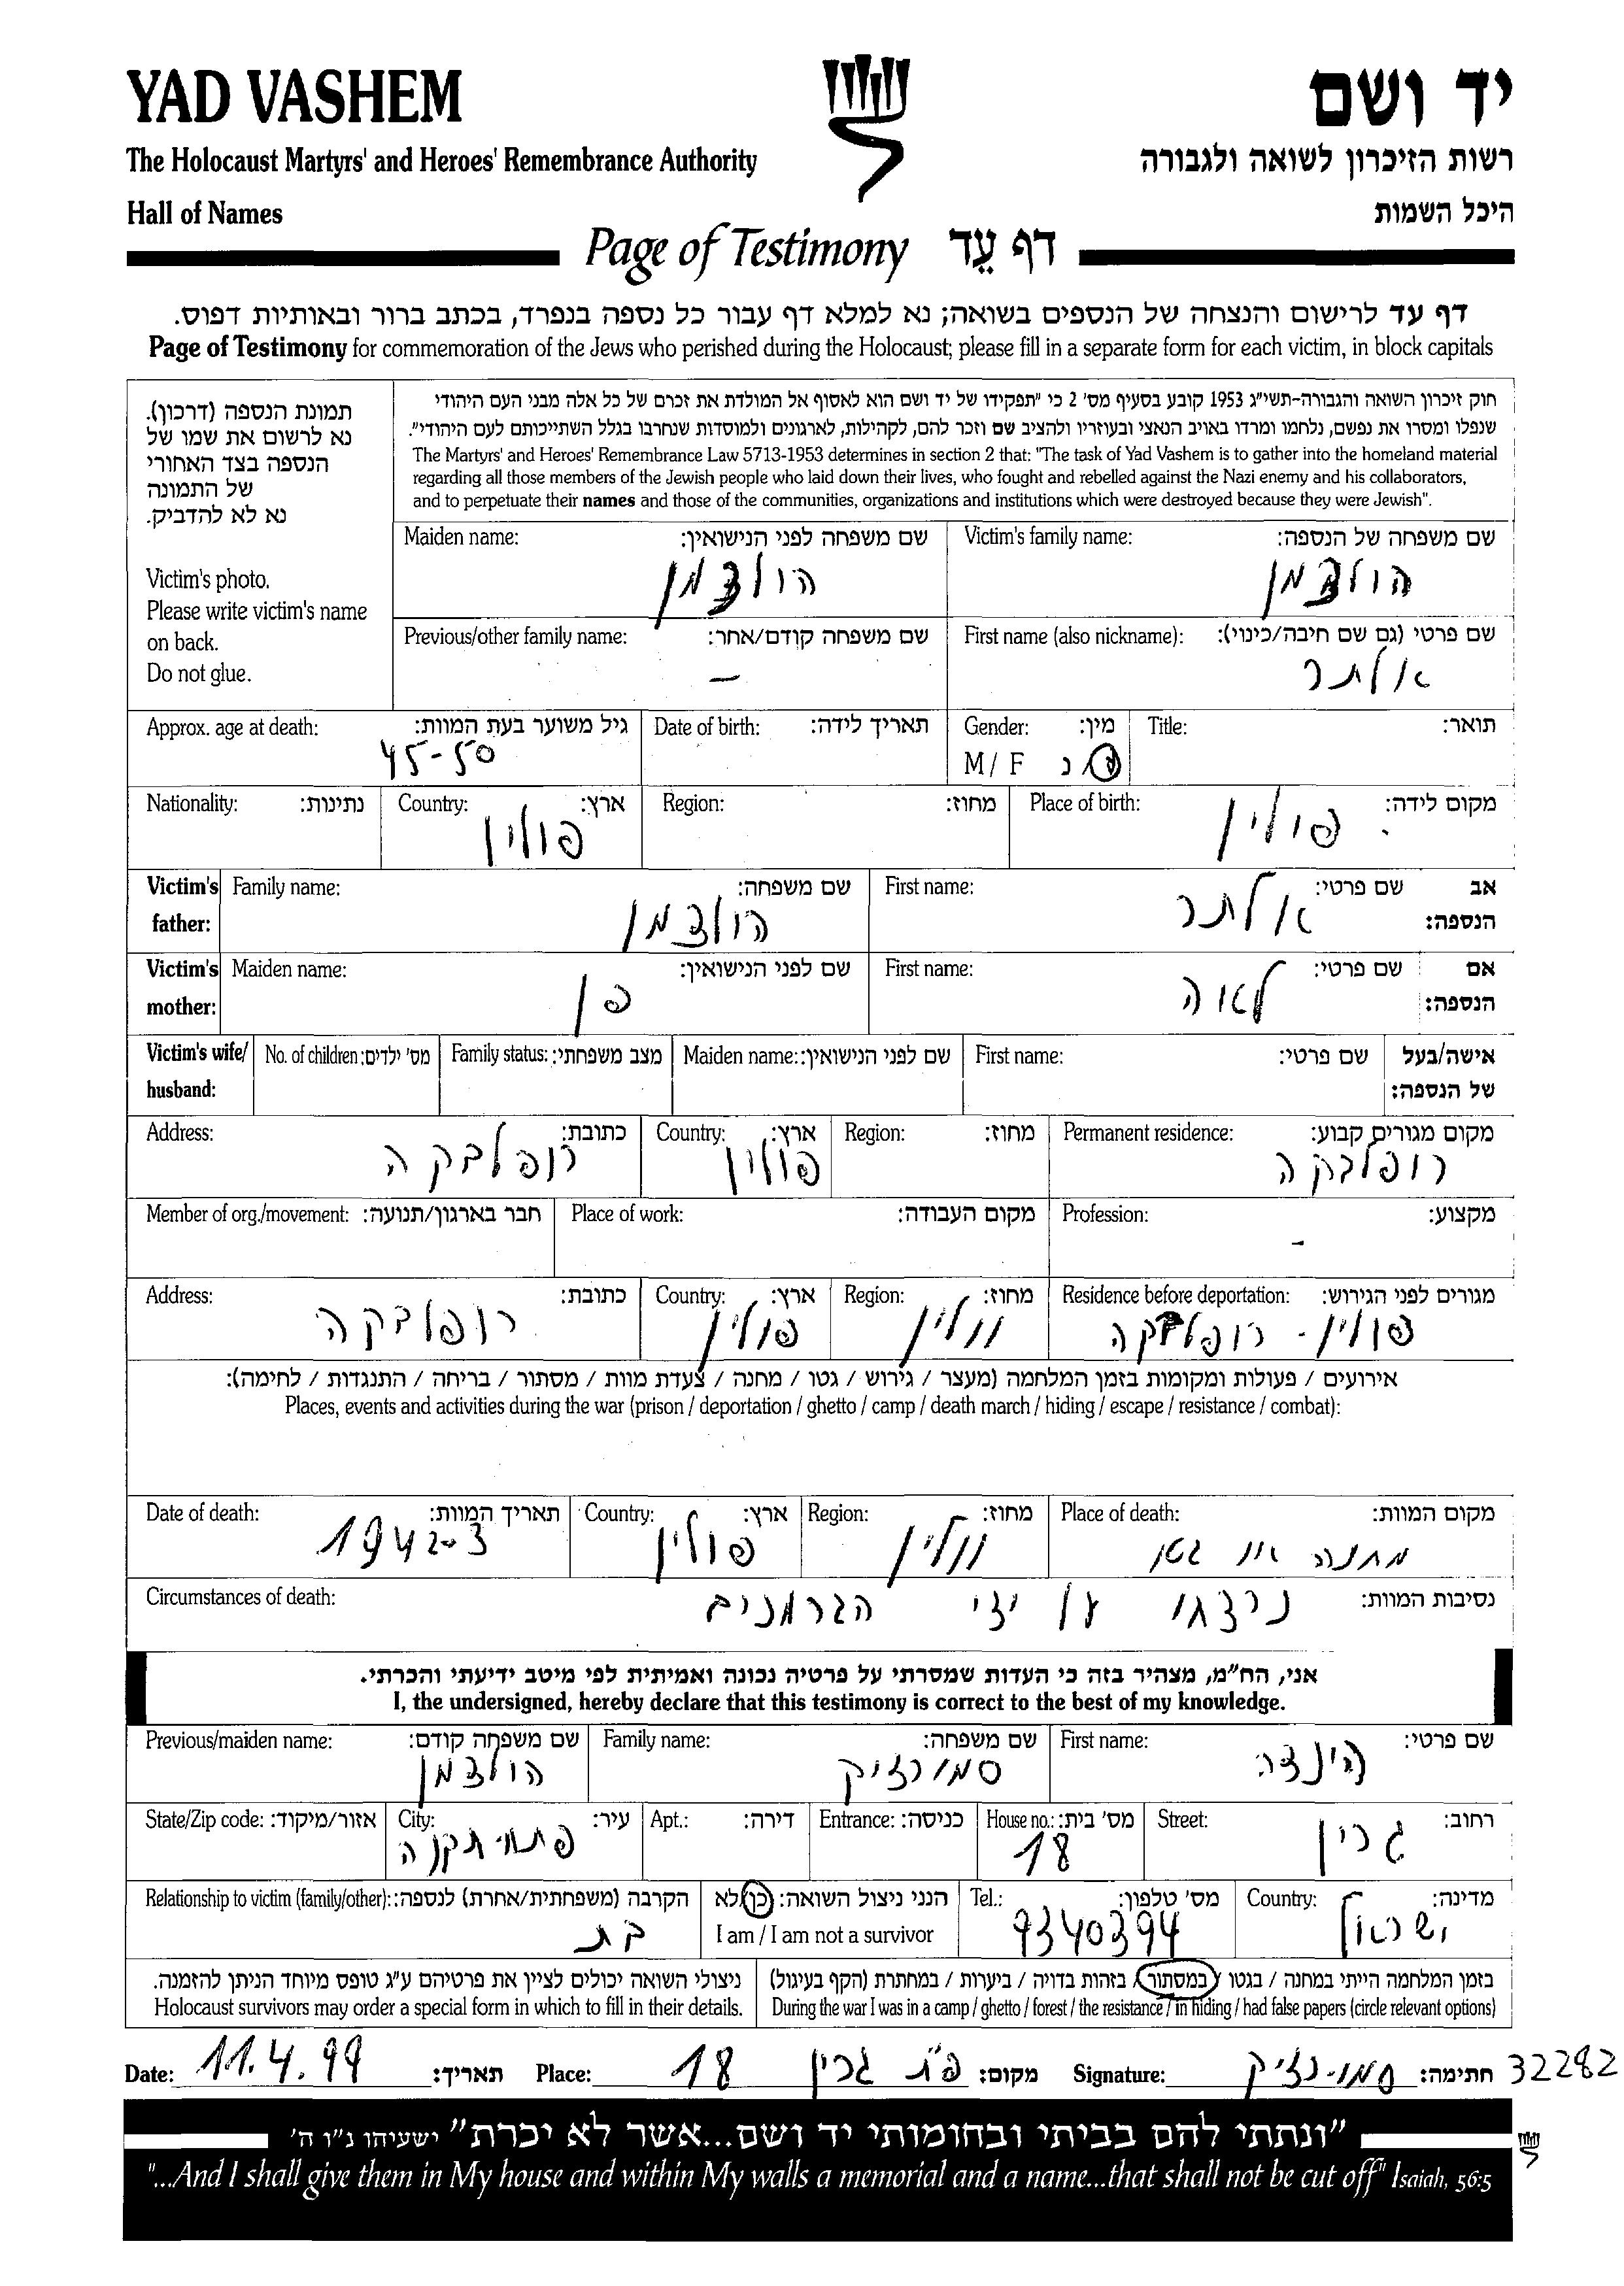 YAD VASHEM
יד ושם
The Holocaust Martyrs' and Heroes' Remembrance Authority
רשות הזיכרון לשואה ולגבורה
Hall of Names
היכל השמות
Page of Testimony דף עֵד
דף עד לרישום והנצחה של הנספים בשואה; נא למלא דף עבור כל נספה בנפרד, בכתב ברור ובאותיות דפוס.
Page of Testimony for commemoration of the Jews who perished during the Holocaust; please fill in a separate form for each victim, in block capitals
תמונת הנספה (דרכון).
נא לרשום את שמו של
הנספה בצד האחורי
של התמונה
נא לא להדביק.
Victim's photo.
Please write victim's name
on back.
Do not glue.
חוק זיכרון השואה והגבורה-תשי"ג 1953 קובע בסעיף מס' 2 כי "תפקידו של יד ושם הוא לאסוף אל המולדת את זכרם של כל אלה מבני העם היהודי
שנפלו ומסרו את נפשם, נלחמו ומרדו באויב הנאצי ובעוזריו ולהציב שם וזכר להם, לקהילות, לארגונים ולמוסדות שנחרבו בגלל השתייכותם לעם היהודי".
The Martyrs' and Heroes' Remembrance Law 5713-1953 determines in section 2 that: "The task of Yad Vashem is to gather into the homeland material
regarding all those members of the Jewish people who laid down their lives, who fought and rebelled against the Nazi enemy and his collaborators,
and to perpetuate their names and those of the communities, organizations and institutions which were destroyed because they were Jewish".
Victim's family name: שם משפחה של הנספה:
הולצמן
Maiden name: שם משפחה לפני הנישואין:
הולצמן
First name (also nickname): שם פרטי (גם שם חיבה/כינוי):
אלתר
Previous/other family name: שם משפחה קודם/אחר:
–
Title: תואר:
Gender: מין:
M / F ז/נ
Date of birth: תאריך לידה:
Approx. age at death: גיל משוער בעת המוות:
45-50
Place of birth: מקום לידה:
פולין
Region: מחוז:
Country: ארץ:
פולין
Nationality: נתינות:
Victim's father: אב הנספה:
First name: שם פרטי:
אלתר
Family name: שם משפחה:
הולצמן
Victim's mother: אם הנספה:
First name: שם פרטי:
לאה
Maiden name: שם לפני הנישואין:
פן
Victim's wife/ husband: אישה/בעל של הנספה:
First name: שם פרטי:
Maiden name: שם לפני הנישואין:
Family status: מצב משפחתי:
No. of children: מס' ילדים:
Permanent residence: מקום מגורים קבוע:
רופלבקה
Region: מחוז:
Country: ארץ:
פולין
Address: כתובת:
רופלבקה
Profession: מקצוע:
–
Place of work: מקום העבודה:
Member of org./movement: חבר בארגון/תנועה:
Residence before deportation: מגורים לפני הגירוש:
פולין - רופלבקה
Region: מחוז:
וולין
Country: ארץ:
פולין
Address: כתובת:
רופלבקה
אירועים / פעולות ומקומות בזמן המלחמה (מעצר / גירוש / גטו / מחנה / צעדת מוות / מסתור / בריחה / התנגדות / לחימה):
Places, events and activities during the war (prison / deportation / ghetto / camp / death march / hiding / escape / resistance / combat):
Place of death: מקום המוות:
מחנה או גטו
Region: מחוז:
וולין
Country: ארץ:
פולין
Date of death: תאריך המוות:
1942-3
Circumstances of death: נסיבות המוות:
נרצחו על ידי הגרמנים
אני, הח"מ, מצהיר בזה כי העדות שמסרתי על פרטיה נכונה ואמיתית לפי מיטב ידיעתי והכרתי.
I, the undersigned, hereby declare that this testimony is correct to the best of my knowledge.
First name: שם פרטי:
הינדה
Family name: שם משפחה:
סמורזיק
Previous/maiden name: שם משפחה קודם:
הולצמן
Street: רחוב:
גרין
House no.: מס' בית:
18
Entrance: כניסה:
Apt.: דירה:
City: עיר:
פתח תקוה
State/Zip code: אזור/מיקוד:
Country: מדינה:
ישראל
Tel.: מס' טלפון:
9340394
הנני ניצול השואה: כן/לא
I am / I am not a survivor
Relationship to victim (family/other): הקרבה (משפחתית/אחרת) לנספה:
בת
בזמן המלחמה הייתי במחנה / בגטו / במסתור / בזהות בדויה / ביערות / במחתרת (הקף בעיגול)
During the war I was in a camp / ghetto / forest / the resistance / in hiding / had false papers (circle relevant options)
ניצולי השואה יכולים לציין את פרטיהם ע"ג טופס מיוחד הניתן להזמנה.
Holocaust survivors may order a special form in which to fill in their details.
Date: 11.4.99 תאריך: Place: פ"ת גרין 18 מקום: Signature: סמורזיק חתימה: 32282
"ונתתי להם בביתי ובחומותי יד ושם...אשר לא יכרת" ישעיהו נ"ו ה'
"...And I shall give them in My house and within My walls a memorial and a name...that shall not be cut off" Isaiah, 56:5